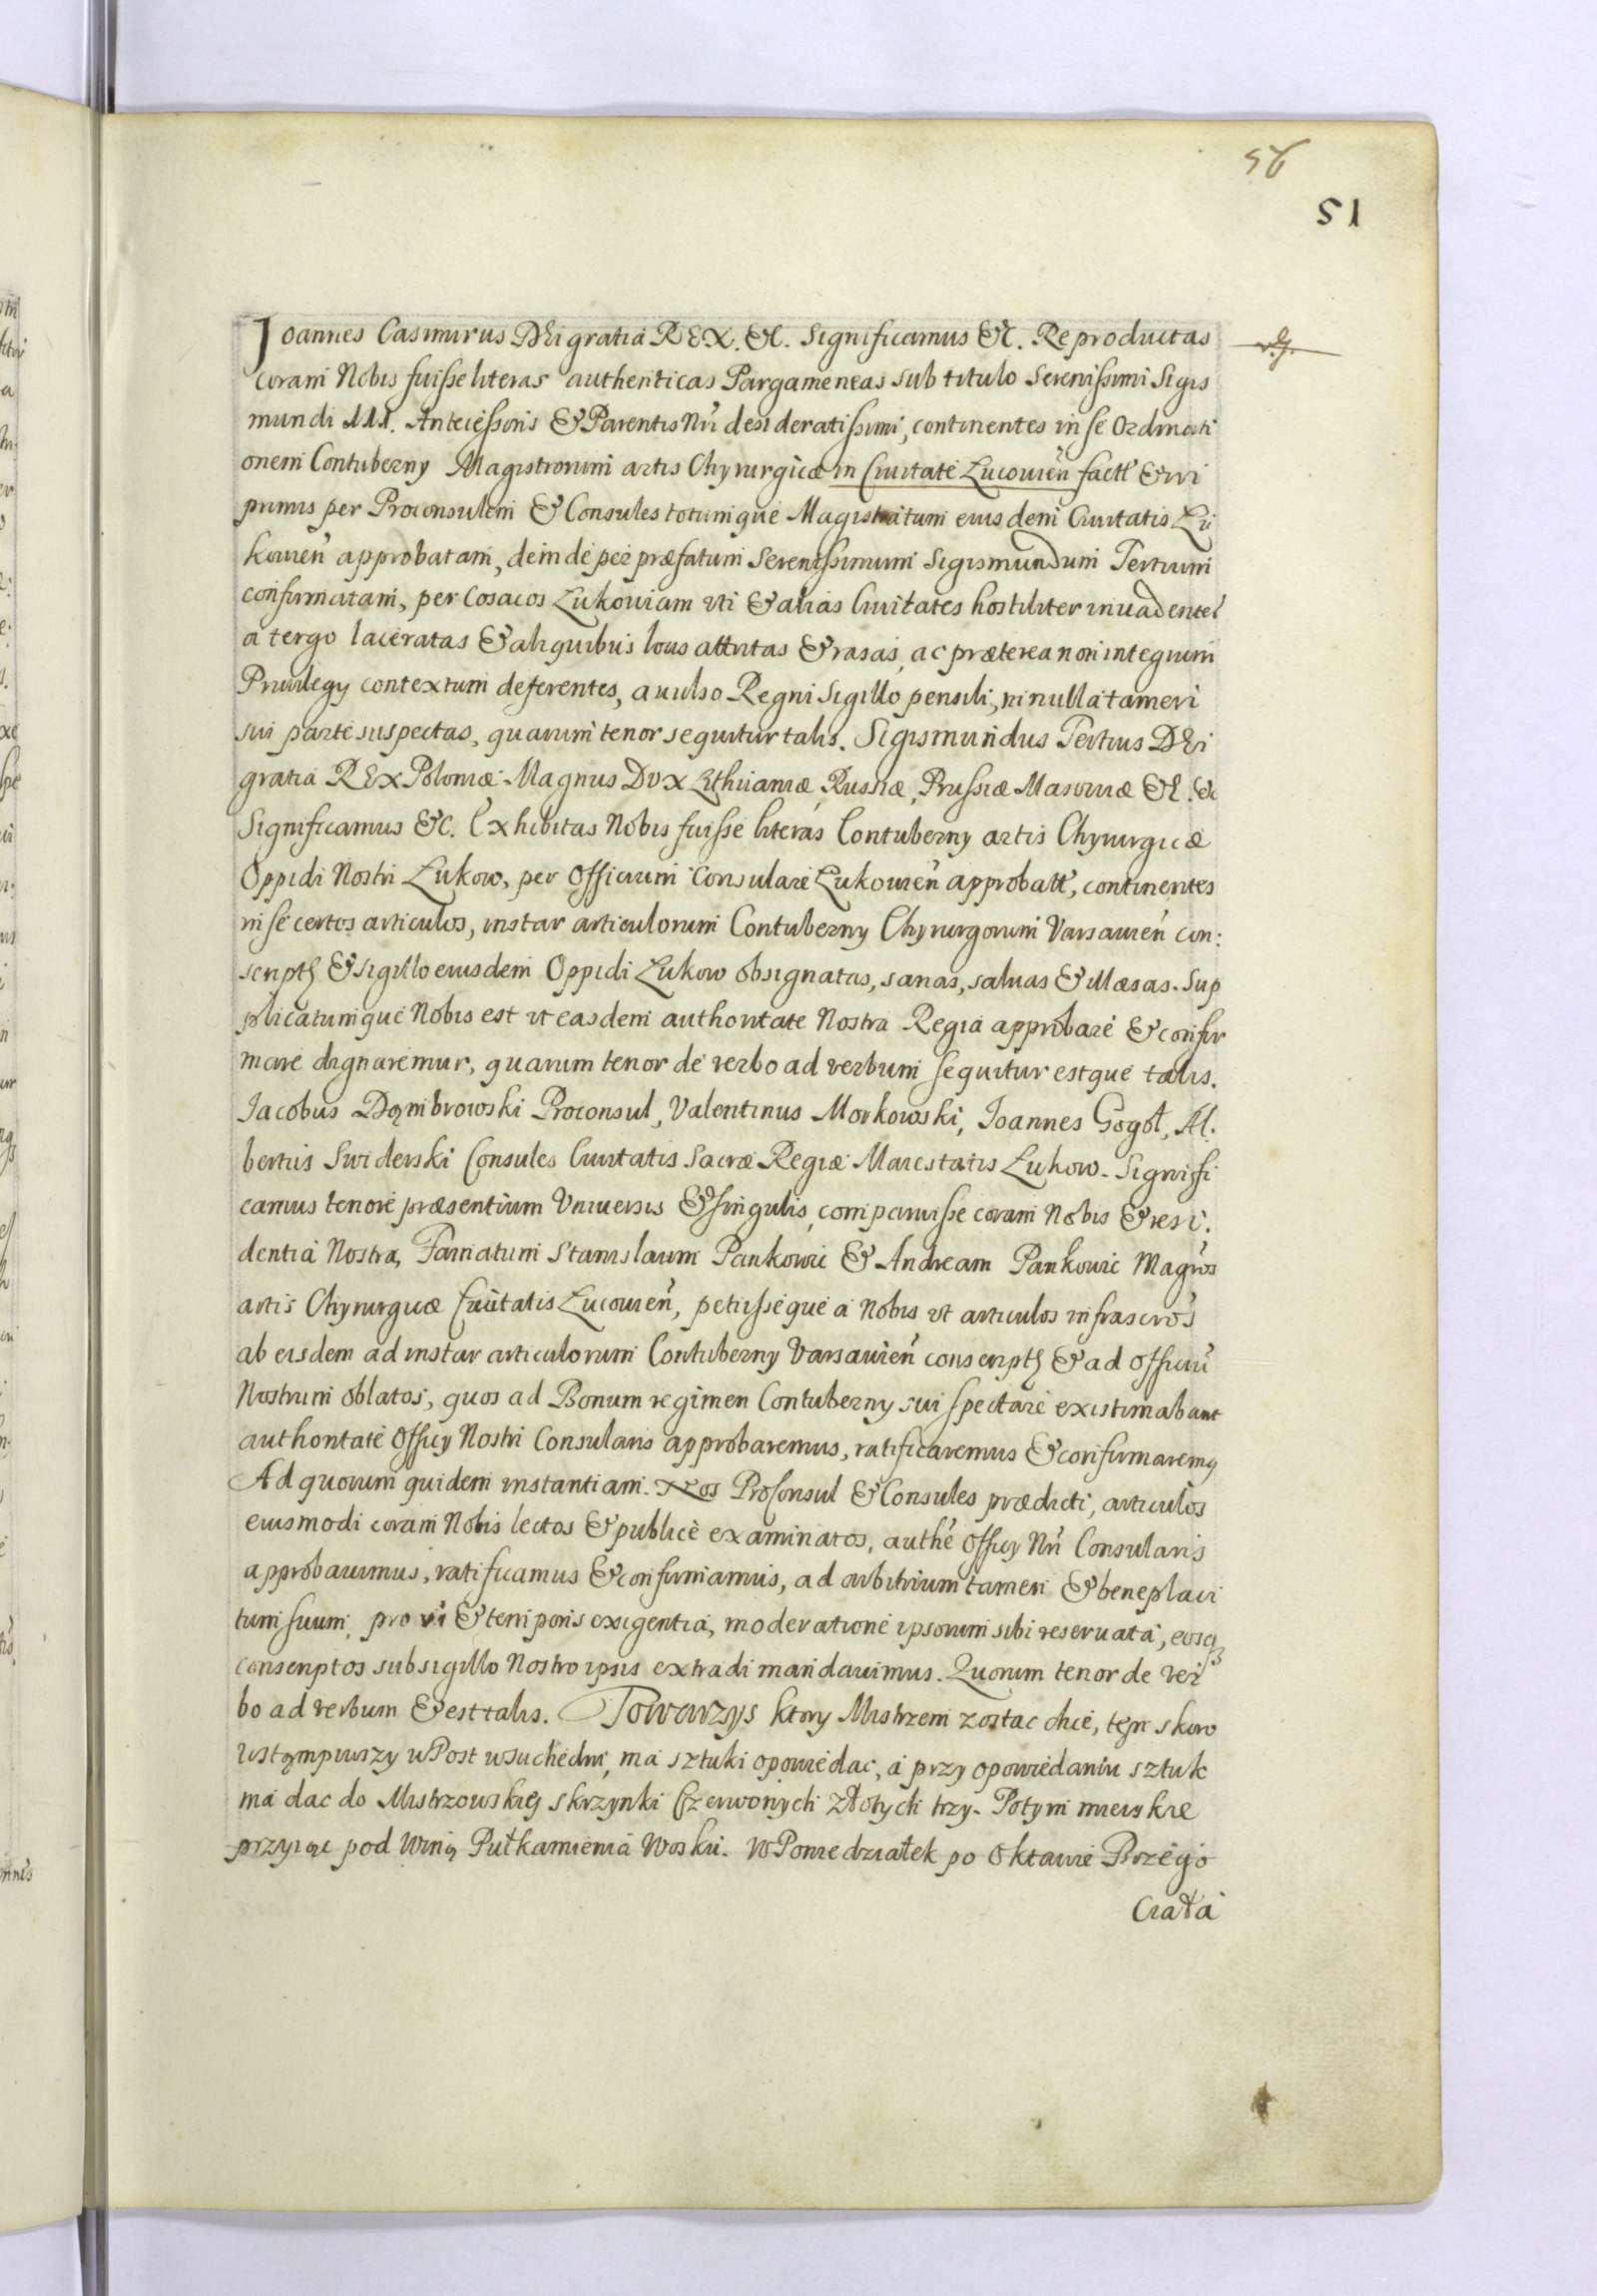 56
51
Joannes Casimirus DEi gratiá REX. &c. Significamus &c. Reproductas
coram Nobis fuisse literas authenticas Pargameneas sub titulo Serenissimi Sigis
mundi III. Antecessoris & Parentis Nri desideratissimi, continentes in se Ordinati
onem Contuberny Magistrorum artis Chyrurgicæ in Civitate Lucovien̄ fact
primis per Proconsulem & Consules totumque Magistratum eiusdem Civitatis Lu
kovien̄ approbatam, deinde per præfatum Serenissimum Sigismundum Tertium
confirmatam, per Cosacos Lukoviam uti & alias Civitates hostiliter invadentes
a tergo laceratas & aliquibus locis attritas & rasas, ac præterea non integrum
Privilegy contextum deferentes, avulso Regni Sigillo pensili, in nulla tamen
sui parte suspectas, quarum tenor sequitur talis. Sigismundus Tertius DEi
gratia REX Poloniæ Magnus Dux Lithuaniæ, Russiæ, Prussiæ Masoviæ &c. &c
Significamus &c. Exhibitas Nobis fuisse literas Contuberny artis Chyrurgicæ
Oppidi Nostri Lukow, per Officium Consulare Lukovien̄ approbatt, continentes
in se certos articulos, instar articulorum Contuberny Chyrurgorum Varsavien̄ con:
script & sigillo eiusdem Oppidi Lukow obsignatas, sanas, salvas & illæsas. Sup
plicatumque Nobis est ut easdem authoritate Nostra Regia approbare & confir
mare dignaremur, quarum tenor de verbo ad verbum sequitur estque talis.
Jacobus Dąmbrowski Proconsul, Valentinus Morkowski, Joannes Gogoł, Al:
bertus Swiderski Consules Civitatis Sacræ Regiæ Maiestatis Lukow. Signifi
camus tenore præsentium Universis & singulis, comparuisse coram Nobis & resi:
dentiá Nostra, Famatum Stanislaum Pankowic & Andream Pankowic Magros
artis Chyrurgicæ Civitatis Lucovien̄, petiisseque a Nobis ut articulos infrascros
ab eisdem ad instar articulorum Contuberny Varsavien̄ conscript & ad Officiū
Nostrum oblatos, quos ad Bonum regimen Contuberny sui spectare existimabant
authoritate Officy Nostri Consularis approbaremus, ratificaremus & confirmaremq
Ad quorum quidem instantiam. Nos ProConsul & Consules prædicti, articulos
eiusmodi coram Nobis lectos & publicè examinatos, authe Officy Nri Consularis
approbavimus, ratificamus & confirmamus, ad arbitrium tamen & beneplaci
tum suum, pro vi & temporis exigentia, moderatione ipsorum sibi reservatá, eosq
conscriptos sub sigillo Nostro ipsis extradi mandavimus. Quorum tenor de ver
bo ad verbum & est talis. Towarzys ktory Mistrzem zostac chce, ten skoro
wstąmpiwszy w Post w suchedni, ma sztuki opowiedac, a przy opowiedaniu sztuk
ma dac do Mistrzowskiej skrzynki Czerwonych złotych trzy. Potym mieiskie
przyiąc pod winą Pułkamienia Wosku. W Poniedziałek po Oktawie Bożego
Ciała